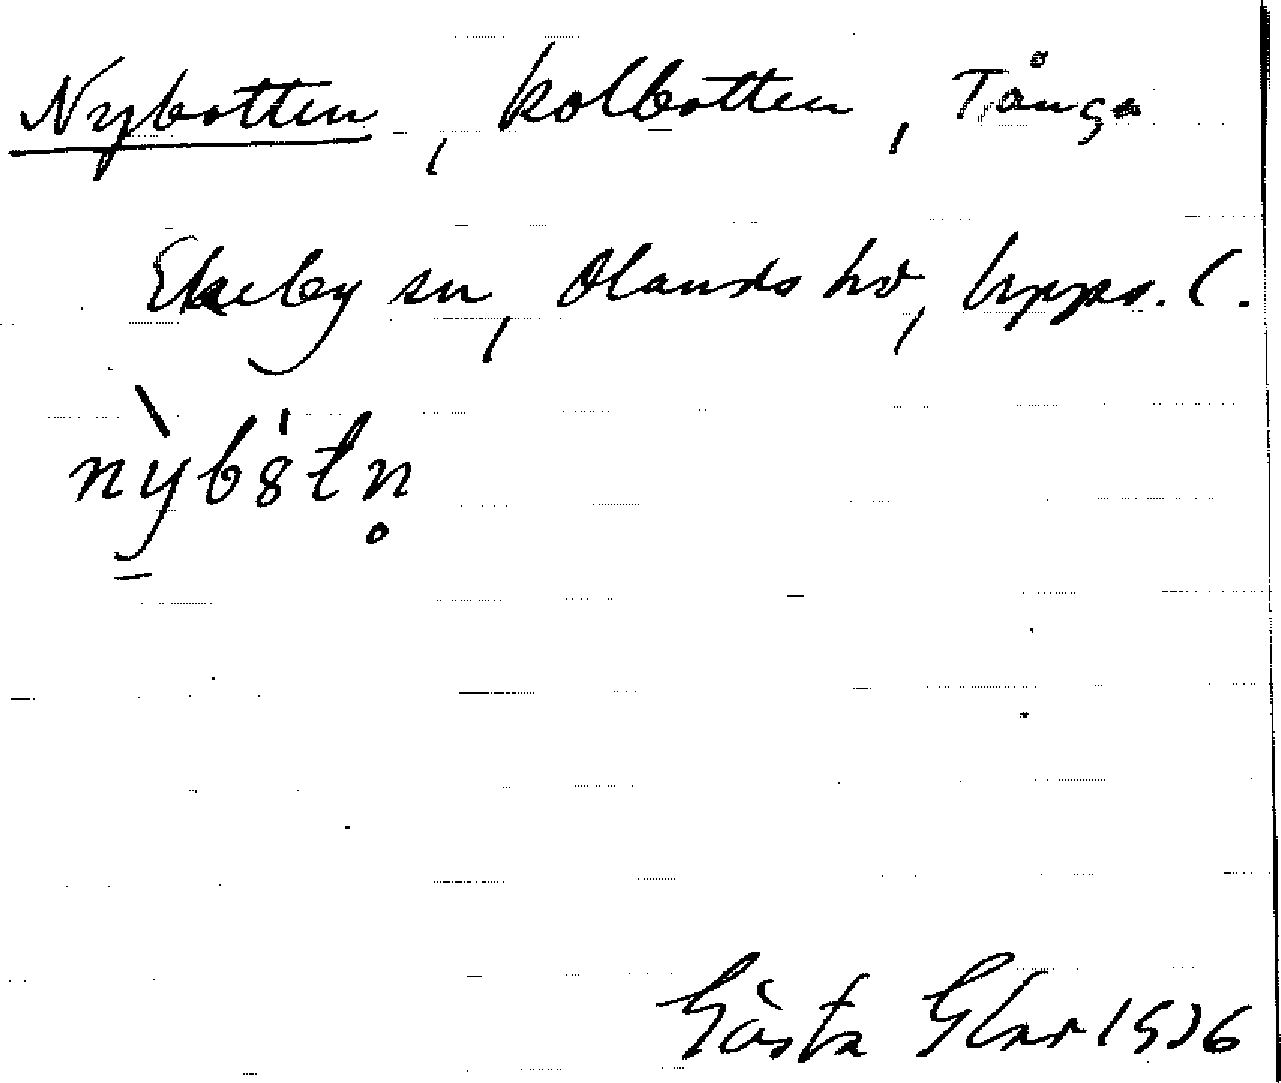 Nybotten, kolbotten, Tånga
Ekeby sn, Olands hd, Upps. l.
nỳbȣ́tn̥
Gösta 1936